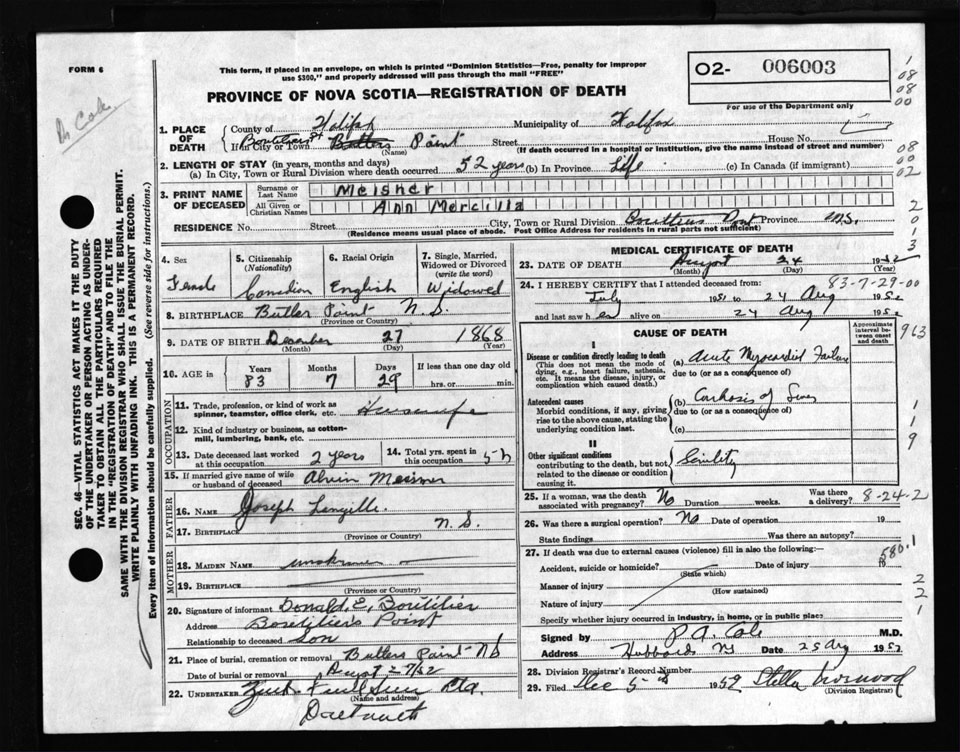 FORM 6
This form, if placed in an envelope, on which is printed "Dominion Statistics—Free, penalty for improper
use $300," and properly addressed will pass through the mail "FREE"
O2- 006003
For use of the Department only
PROVINCE OF NOVA SCOTIA—REGISTRATION OF DEATH
Dr Cole
1. PLACE OF DEATH
County of Halifax Municipality of Halifax
If in City or Town Boutiliers Butlers Point Street House No.
(Name) (If death occurred in a hospital or institution, give the name instead of street and number)
2. LENGTH OF STAY (in years, months and days)
(a) In City, Town or Rural Division where death occurred 52 years (b) In Province Life (c) In Canada (if immigrant)
3. PRINT NAME OF DECEASED
Surname or Last Name Meisner
All Given or Christian Names Ann Mercilla
RESIDENCE No. Street City, Town or Rural Division Point Province N.S.
(Residence means usual place of abode. Post Office Address for residents in rural parts not sufficient)
4. Sex Female
5. Citizenship (Nationality) Canadian
6. Racial Origin English
7. Single, Married, Widowed or Divorced (write the word) Widowed
8. BIRTHPLACE Butler Point N.S.
(Province or Country)
9. DATE OF BIRTH December 27 1868
(Month) (Day) (Year)
10. AGE in Years 83 Months 7 Days 29 If less than one day old
hrs. or min.
OCCUPATION
11. Trade, profession, or kind of work as
spinner, teamster, office clerk, etc. Housewife
12. Kind of industry or business, as cotton-
mill, lumbering, bank, etc.
13. Date deceased last worked
at this occupation 2 years
14. Total yrs. spent in
this occupation
15. If married give name of wife
or husband of deceased Alvin Meisner
FATHER
16. NAME Joseph Langille
17. BIRTHPLACE N.S.
(Province or Country)
MOTHER
18. MAIDEN NAME unknown
19. BIRTHPLACE
(Province or Country)
20. Signature of informant Donald E. Boutilier
Address Boutiliers Point
Relationship to deceased Son
21. Place of burial, cremation or removal Butlers Point NS
Date of burial or removal August 27/52
22. UNDERTAKER Ltd.
(Name and address)
Dartmouth
MEDICAL CERTIFICATE OF DEATH
23. DATE OF DEATH August 24 1952
(Month) (Day) (Year)
24. I HEREBY CERTIFY that I attended deceased from: 83-7-29-00
July 1951 to 24 Aug 1952
and last saw her alive on 24 Aug 1952
CAUSE OF DEATH
Approximate interval between onset and death
I
Disease or condition directly leading to death
(This does not mean the mode of
dying, e.g., heart failure, asthenia,
etc. It means the disease, injury, or
complication which caused death.)
(a) Acute Myocardial Failure
due to (or as a consequence of)
Antecedent causes
Morbid conditions, if any, giving
rise to the above cause, stating the
underlying condition last.
(b) Cirrhosis of Liver
due to (or as a consequence of)
(c)
II
Other significant conditions
contributing to the death, but not
related to the disease or condition
causing it.
Senility
25. If a woman, was the death
associated with pregnancy? No Duration weeks. Was there a delivery? 8-24-2
26. Was there a surgical operation? No Date of operation 19
State findings Was there an autopsy?
27. If death was due to external causes (violence) fill in also the following:— 580.1
Accident, suicide or homicide? Date of injury 19
(State which)
Manner of injury
(How sustained)
Nature of injury
Specify whether injury occurred in industry, in home, or in public place
Signed by P A Cole M.D.
Address Hubbards NS Date 25 Aug 1952
28. Division Registrar's Record Number
29. Filed Dec 5th 1952 Stella
(Division Registrar)
SEC. 46—VITAL STATISTICS ACT MAKES IT THE DUTY
OF THE UNDERTAKER OR PERSON ACTING AS UNDER-
TAKER TO OBTAIN ALL THE PARTICULARS REQUIRED
IN THE "REGISTRATION OF DEATH" AND TO FILE THE
SAME WITH THE DIVISION REGISTRAR WHO SHALL ISSUE THE BURIAL PERMIT.
WRITE PLAINLY WITH UNFADING INK. THIS IS A PERMANENT RECORD.
Every item of information should be carefully supplied. (See reverse side for instructions.)
1
08
08
00
08
00
02
2
0
1
3
963
1
1
9
1
2
2
1